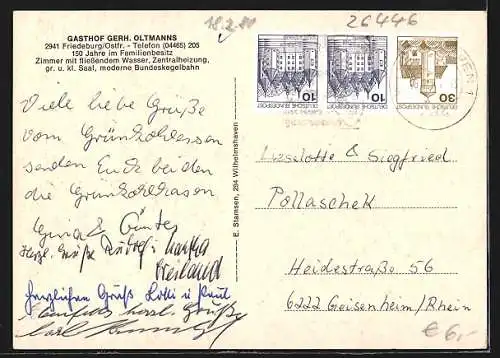 18.2.80
26446
GASTHOF GERH. OLTMANNS
2941 Friedeburg/Ostfr. - Telefon (04465) 205
150 Jahre im Familienbesitz
Zimmer mit fließendem Wasser, Zentralheizung,
gr. u. kl. Saal, moderne Bundeskegelbahn
Viele liebe Grüße
vom Grünkohlessen
senden Euch beiden
die Grünkohlhasen
Gina & Günter
Herzl. Grüße Rudolf
Herzlichen Gruß Lotti u Paul
herzl. Grüße
E. Stamsen, 294 Wilhelmshaven
DEUTSCHE BUNDESPOST
10
DEUTSCHE BUNDESPOST
10
DEUTSCHE BUNDESPOST
30
Lieselotte & Siegfried
Pollaschek
Heidestraße 56
6222 Geisenheim/Rhein
€ 6,-